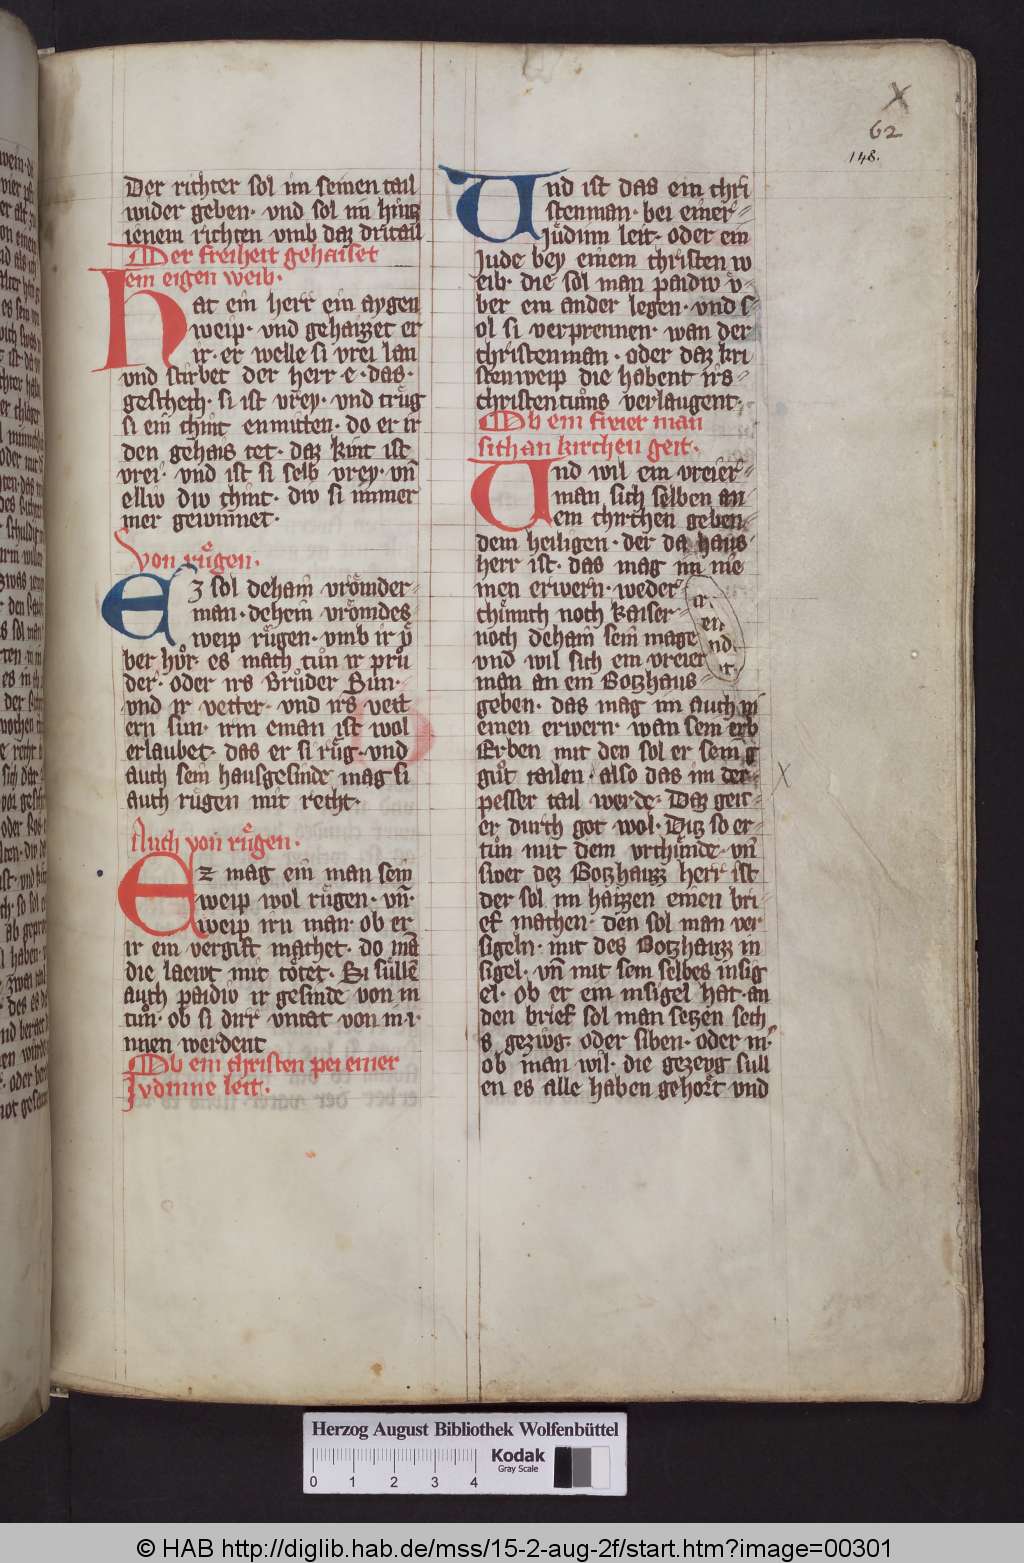 X
62
148.
Der richter sol im seinen tail
wider geben· vnd sol im hintz
ienem richten vmb daz dritail
Der freiheit gehaiset
ein eigen weib·
Hat ein herr ein aygen
weip· vnd gehaizzet er
ir· er welle si vrei lan
vnd stirbet der herr· e· das·
geschech· si ist vrey· vnd trůg
si ein chint enmitten· do er ir
den gehais tet· daz kint ist
vrei· vnd ist si selb vrey· vn̄
elliv div chint· div si immer
mer gewinnet·
Von ruͤgen·
Ez sol dehain vroͤmder
man· dehein vroͤmdes
weip ruͤgen· vmb ir v̊
ber hůr· es mach tůn ir prů
der· oder irs Brůder Sun·
vnd ir vetter· vnd irs vett
ern sun· irm eman ist wol
erlaubet· das er si ruͤg· vnd
auch sein hausgesinde mag si
auch ruͤgen mit recht·
Auch von ruͤgen·
Ez mag ein man sein
weip wol ruͤgen· vn̄·
weip irn man· ob er
ir ein vergift machet· do mā
die laewt mit toͤtet· Si suͤllē
auch paidiv ir gesinde von in
tůn· ob si durr vntat von in i·
nnen werdent
Ob ein christen pei einer
Jvdinne leit·
Und ist das ein chri
stenman· bei einer
Juͤdinn leit· oder ein
Jude bey einem christen w
eib· die sol man paidiw v̊
ber ein ander legen· vnd s
ol si verprennen· wan der
christenman· oder daz kri
stenweip die habent irs
christentůms verlaugent·
Ob ein frier man
sich an kirchen geit·
Und wil ein vreier
man sich selben an
ein chirchen geben
dem heiligen· der da haus
herr ist· das mag im nie
men erwern· weder
chuͤnich noch kaiser
noch dehain sein mage
vnd wil sich ein vreier
man an ein Gotzhaus
geben· das mag im auch ni
emen erwern· wan sein erb
Erben mit den sol er sein g
gůt tailen· also das im der
pesser tail werde· Daz geit
er durch got wol· Ditz so er
tůn mit dem vrchuͤnde· vn̄
swer dez Gotzhauzz herr ist
der sol im haizzen einen bri
ef machen· den sol man ver
sigeln· mit des Gotzhauzz in
sigel· vn̄ mit sein selbes insig
el· ob er ein insigel hat· an
den brief sol man setzen sech
s gezivg· oder siben· oder m·
ob man wil· die gezevg sull
en es alle haben gehoͤrt vnd
Herzog August Bibliothek Wolfenbüttel
Kodak
Gray Scale
0 1 2 3 4
© HAB http://diglib.hab.de/mss/15-2-aug-2f/start.htm?image=00301